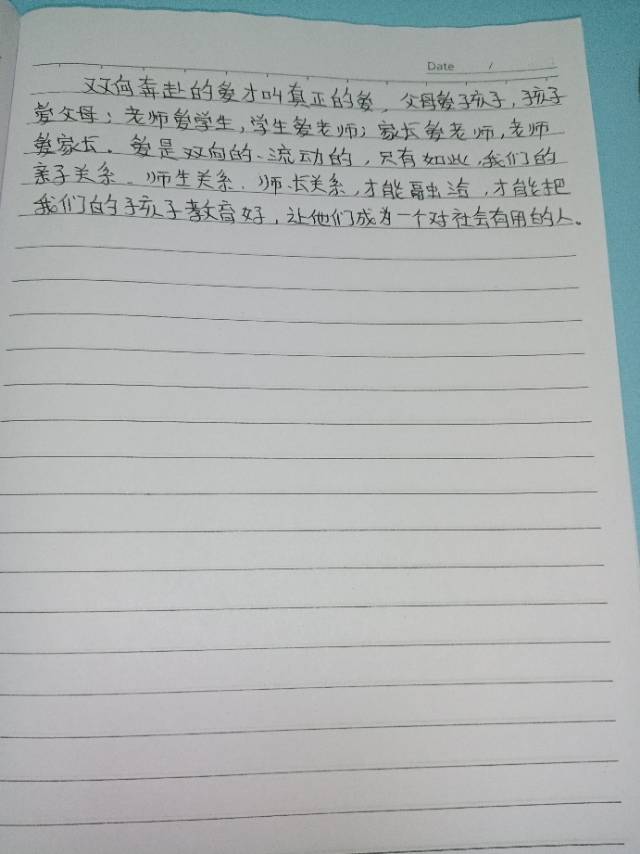 Date /
双向奔赴的爱才叫真正的爱，父母爱孩子，孩子
爱父母；老师爱学生，学生爱老师；家长爱老师，老师
爱家长。爱是双向的、流动的，只有如此，我们的
亲子关系、师生关系、师长关系，才能融洽，才能把
我们的孩子教育好，让他们成为一个对社会有用的人。